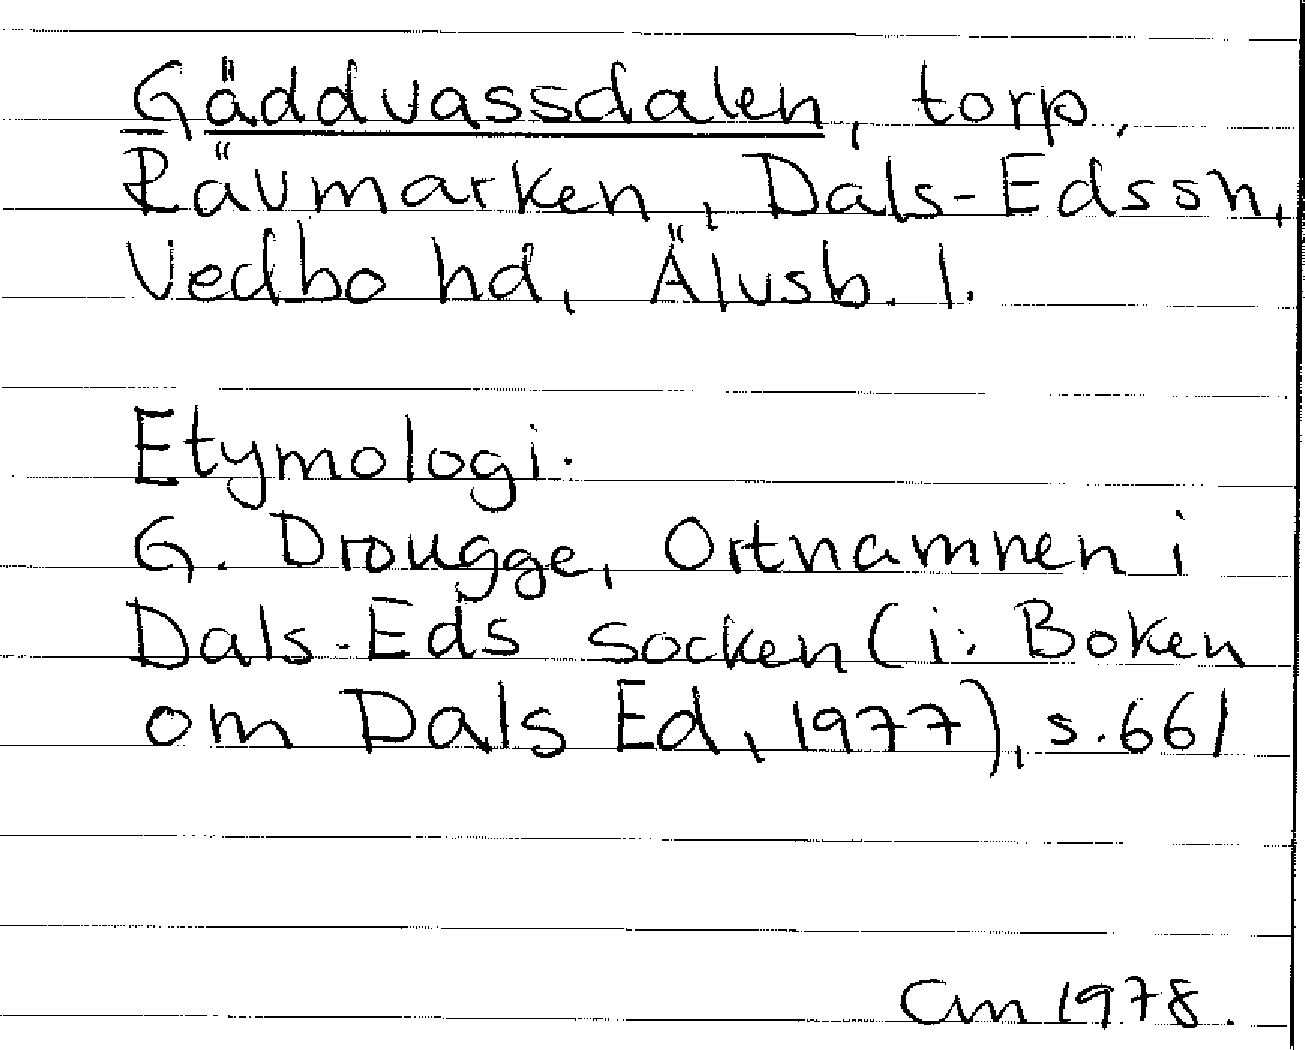 Gäddvassdalen, torp,
Rävmarken, Dals-Eds sn,
Vedbo hd, Älvsb. l.
Etymologi:
G. Drougge, Ortnamnen i
Dals-Eds socken (i: Boken
om Dals Ed, 1977), s. 661
CM 1978.